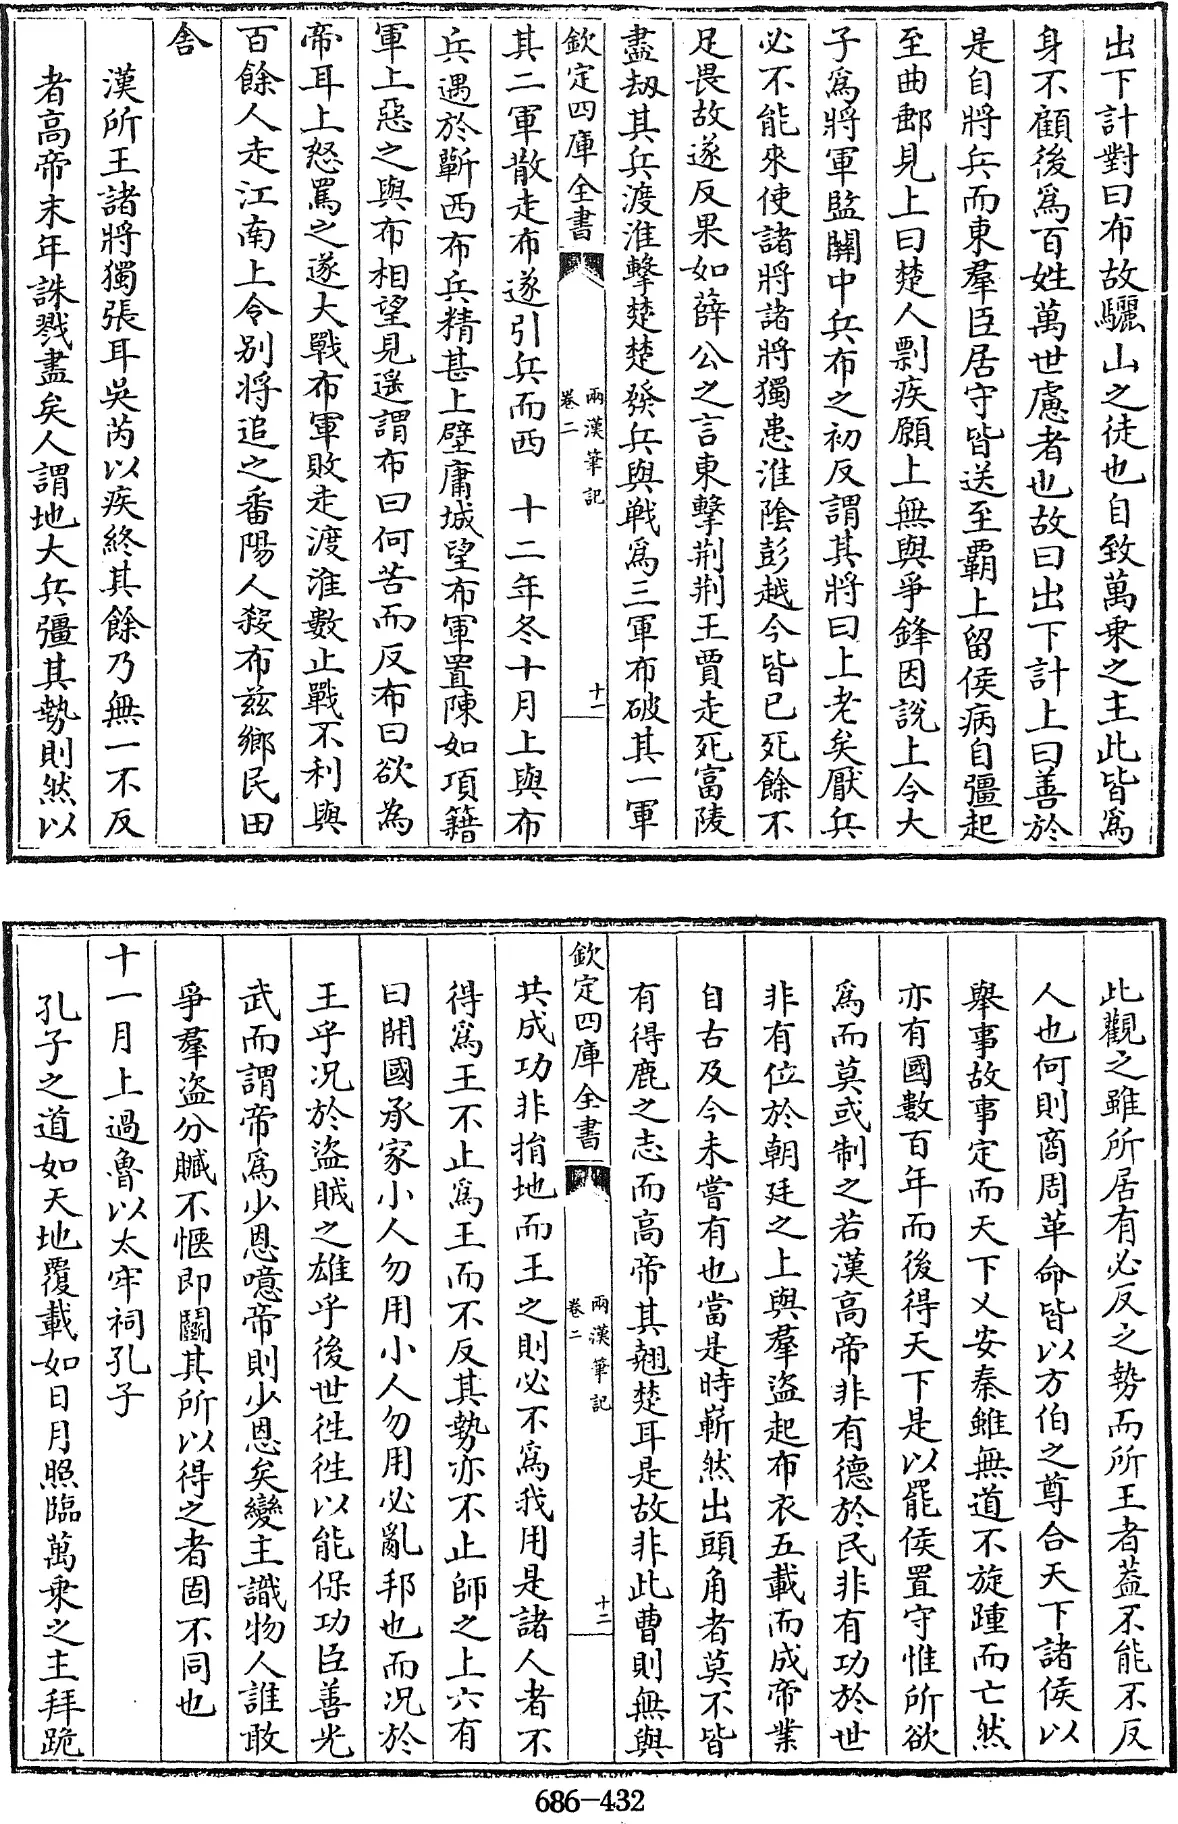 出下計對曰布故驪山之徒也自致萬乗之主此皆爲
身不顧後爲百姓萬世慮者也故曰出下計上曰善於
是自將兵而東羣臣居守皆送至覇上留侯病自彊起
至曲郵見上曰楚人剽疾願上無與爭鋒因説上令大
子爲將軍監關中兵布之初反謂其將曰上老矣厭兵
必不能來使諸將諸將獨患淮陰彭越今皆已死餘不
足畏故遂反果如薛公之言東擊荆荆王賈走死富陵
盡刼其兵渡淮擊楚楚發兵與戦爲三軍布破其一軍
欽定四庫全書
兩漢筆記
卷二
十一
其二軍散走布遂引兵而西 十二年冬十月上與布
兵遇於蘄西布兵精甚上壁庸城望布軍置陳如項籍
軍上惡之與布相望見遥謂布曰何苦而反布曰欲為
帝耳上怒罵之遂大戰布軍敗走渡淮數止戰不利與
百餘人走江南上令别將追之番陽人殺布兹鄉民田
舎
漢所王諸將獨張耳吳芮以疾終其餘乃無一不反
者高帝末年誅戮盡矣人謂地大兵彊其勢則然以
此觀之雖所居有必反之勢而所王者葢不能不反
人也何則商周革命皆以方伯之尊合天下諸侯以
舉事故事定而天下乂安秦雖無道不旋踵而亡然
亦有國數百年而後得天下是以罷侯置守惟所欲
爲而莫或制之若漢高帝非有德於民非有功於世
非有位於朝廷之上與羣盗起布衣五載而成帝業
自古及今未嘗有也當是時嶄然出頭角者莫不皆
有得鹿之志而高帝其翹楚耳是故非此曹則無與
欽定四庫全書
兩漢筆記
卷二
十二
共成功非捐地而王之則必不爲我用是諸人者不
得爲王不止爲王而不反其勢亦不止師之上六有
曰開國承家小人勿用小人勿用必亂邦也而况於
王乎况於盜賊之雄乎後世徃徃以能保功臣善光
武而謂帝爲少恩噫帝則少恩矣變主識物人誰敢
爭羣盗分贓不愜即鬭其所以得之者固不同也
十一月上過魯以太牢祠孔子
孔子之道如天地覆載如日月照臨萬乗之主拜跪
686-432